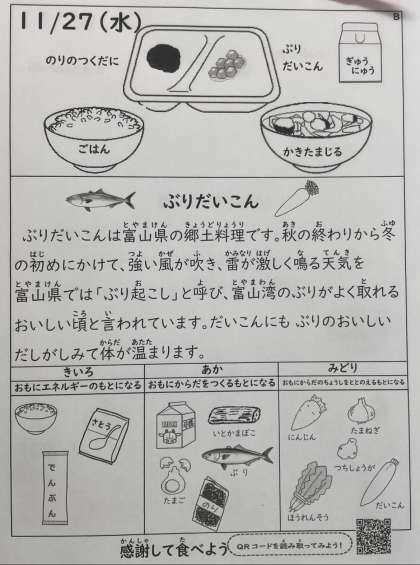 11/27(水)
B
のりのつくだに
ぶり
だいこん
ぎゅう
にゅう
ごはん
かきたまじる
ぶりだいこん
ぶりだいこんは富山県の郷土料理です。秋の終わりから冬
の初めにかけて、強い風が吹き、雷が激しく鳴る天気を
富山県では「ぶり起こし」と呼び、富山湾のぶりがよく取れる
おいしい頃と言われています。だいこんにも ぶりのおいしい
だしがしみて体が温まります。
きいろ
あか
みどり
おもにエネルギーのもとになる
おもにからだをつくるもとになる
おもにからだのちょうしをととのえるもとになる
さとう
でんぷん
いとかまぼこ
ぶり
たまご
のり
にんじん
たまねぎ
つちしょうが
ほうれんそう
だいこん
感謝して食べよう
QRコードを読み取ってみよう!